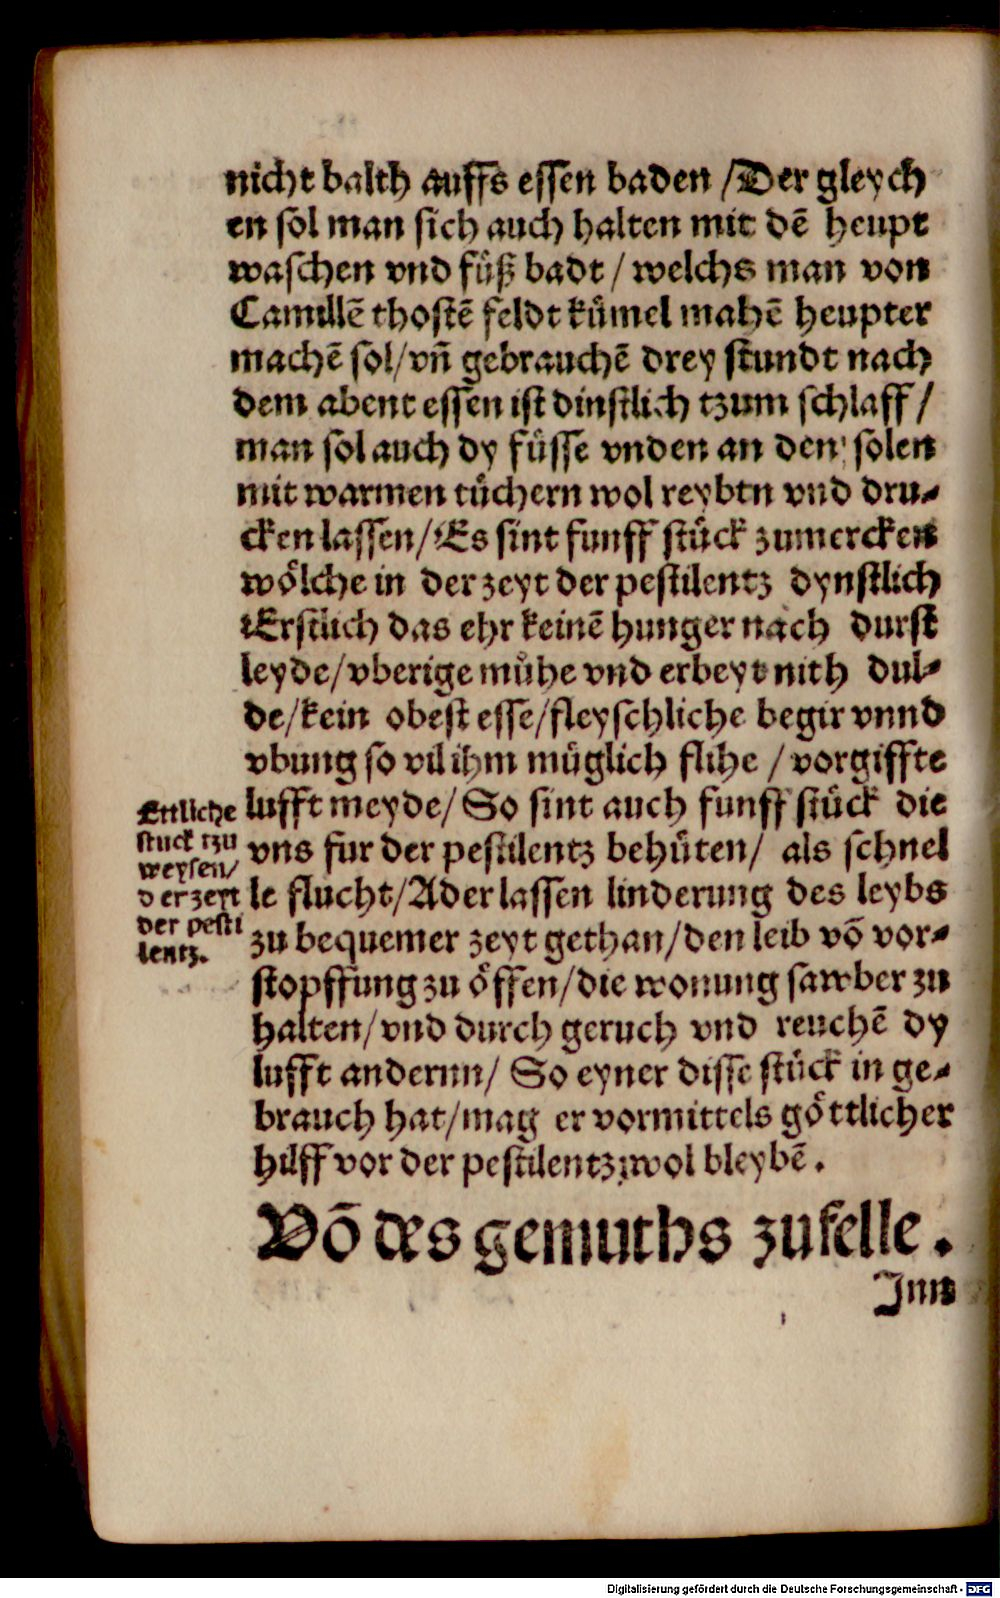 nicht balth auffs essen baden /Der gleych
en sol man sich auch halten mit dē heupt
waschen vnd fuͤß badt / welchs man von
Camillē thostē feldt kuͤmel mahē heupter
machē sol/vn̄ gebrauchē drey stundt nach
dem abent essen ist dinstlich tzum schlaff /
man sol auch dy fuͤsse vnden an den solen
mit warmen tuͤchern wol reybtn vnd dru⸗
cken lassen/Es sint funff stuͤck zumercken
woͤlche in der zeyt der pestilentz dynstlich
Erstlich das ehr keinē hunger nach durst
leyde/vberige muͤhe vnd erbeyt nith dul⸗
de/kein obest esse/fleyschliche begir vnnd
vbung so vil ihm muͤglich flihe / vorgiffte
lufft meyde/ So sint auch funff stuͤck die
vns fur der pestilentz behuͤten/ als schnel
le flucht/Ader lassen linderung des leybs
zu bequemer zeyt gethan/den leib vō vor⸗
stopffung zu oͤffen/die wonung sawber zu
halten/vnd durch geruch vnd reuchē dy
lufft andernn/ So eyner disse stuͤck in ge⸗
brauch hat/mag er vormittels goͤttlicher
hilff vor der pestilentz wol bleybē.
Ettliche
stuck tzu
weysen/
der zeyt
der pesti
lentz.
Vō des gemuths zufelle.
Inn
Digitalisierung gefördert durch die Deutsche Forschungsgemeinschaft - DFG